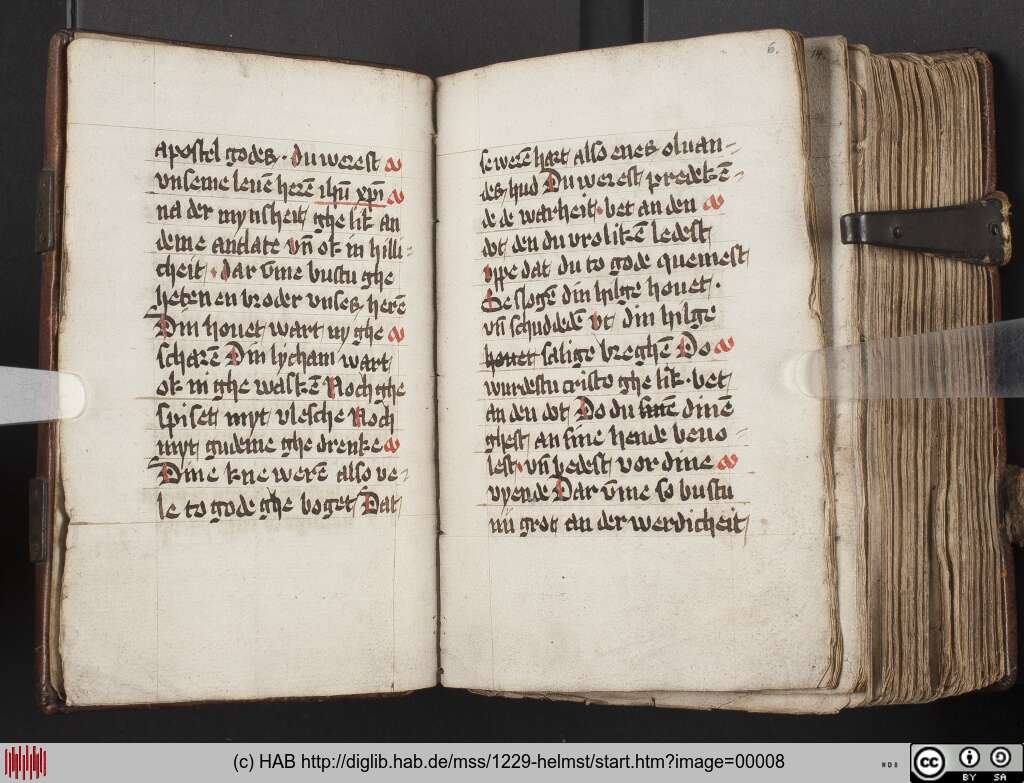 apostel godes · du werest
vnseme leuē herē ihū xp̄i
na der mynsheit ghe lik an
deme andlate vn̄ ok in hilli⸗
cheit · dar v̄me bustu ghe
heten en broder vnses herē
Din houet wart ny ghe
scharē Din lycham wart
ok ni ghe waskē Noch ghe
spiset myt vlesche Noch
myt gudeme ghe drenke
Dine kne werē also ve⸗
le to gode ghe boget Dat
6.
se werē hart also enes oluan⸗
des hud Du werest predekē⸗
de de warheit · bet an den
dot den du vrolikē ledest
vppe dat du to gode quemest
Se slogē din hilge houet ·
vn̄ schuddedē vt din hilge
houet salige breghē Do
wurdestu cristo ghe lik · bet
an den dot Do du sinē dinē
ghest an sine hende beuo⸗
lest · vn̄ bedest vor dine
vyende Dar v̄me so bustu
nu grot an der werdicheit
14
(c) HAB http://diglib.hab.de/mss/1229-helmst/start.htm?image=00008
WDB
CC BY SA